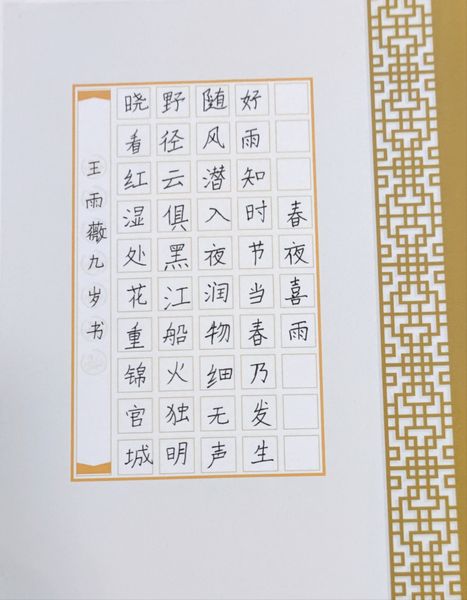 春夜喜雨
好雨知时节当春乃发生
随风潜入夜润物细无声
野径云俱黑江船火独明
晓看红湿处花重锦官城
王雨薇九岁书